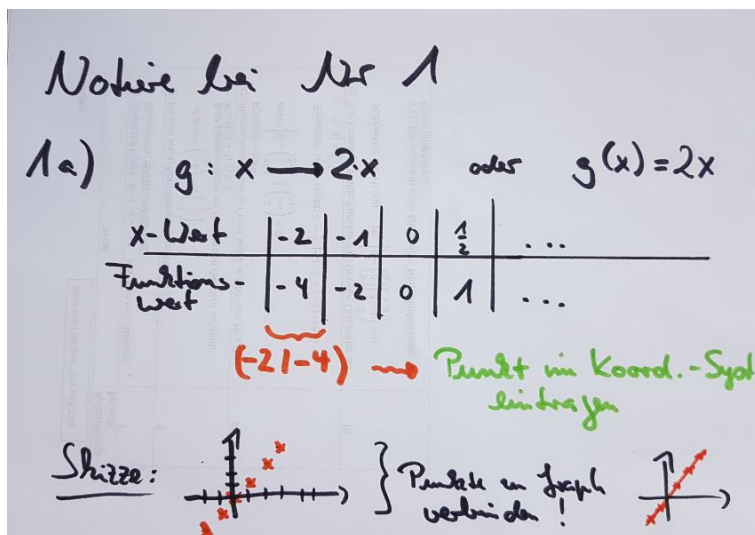 Notiere bei Nr 1
1a) g: x → 2·x oder g(x) = 2x
x-Wert | -2 | -1 | 0 | 1/2 | ...
Funktions-
wert | -4 | -2 | 0 | 1 | ...
(-2|-4) → Punkt im Koord.-Syst
eintragen
Skizze: } Punkte zu Graph
verbinden!